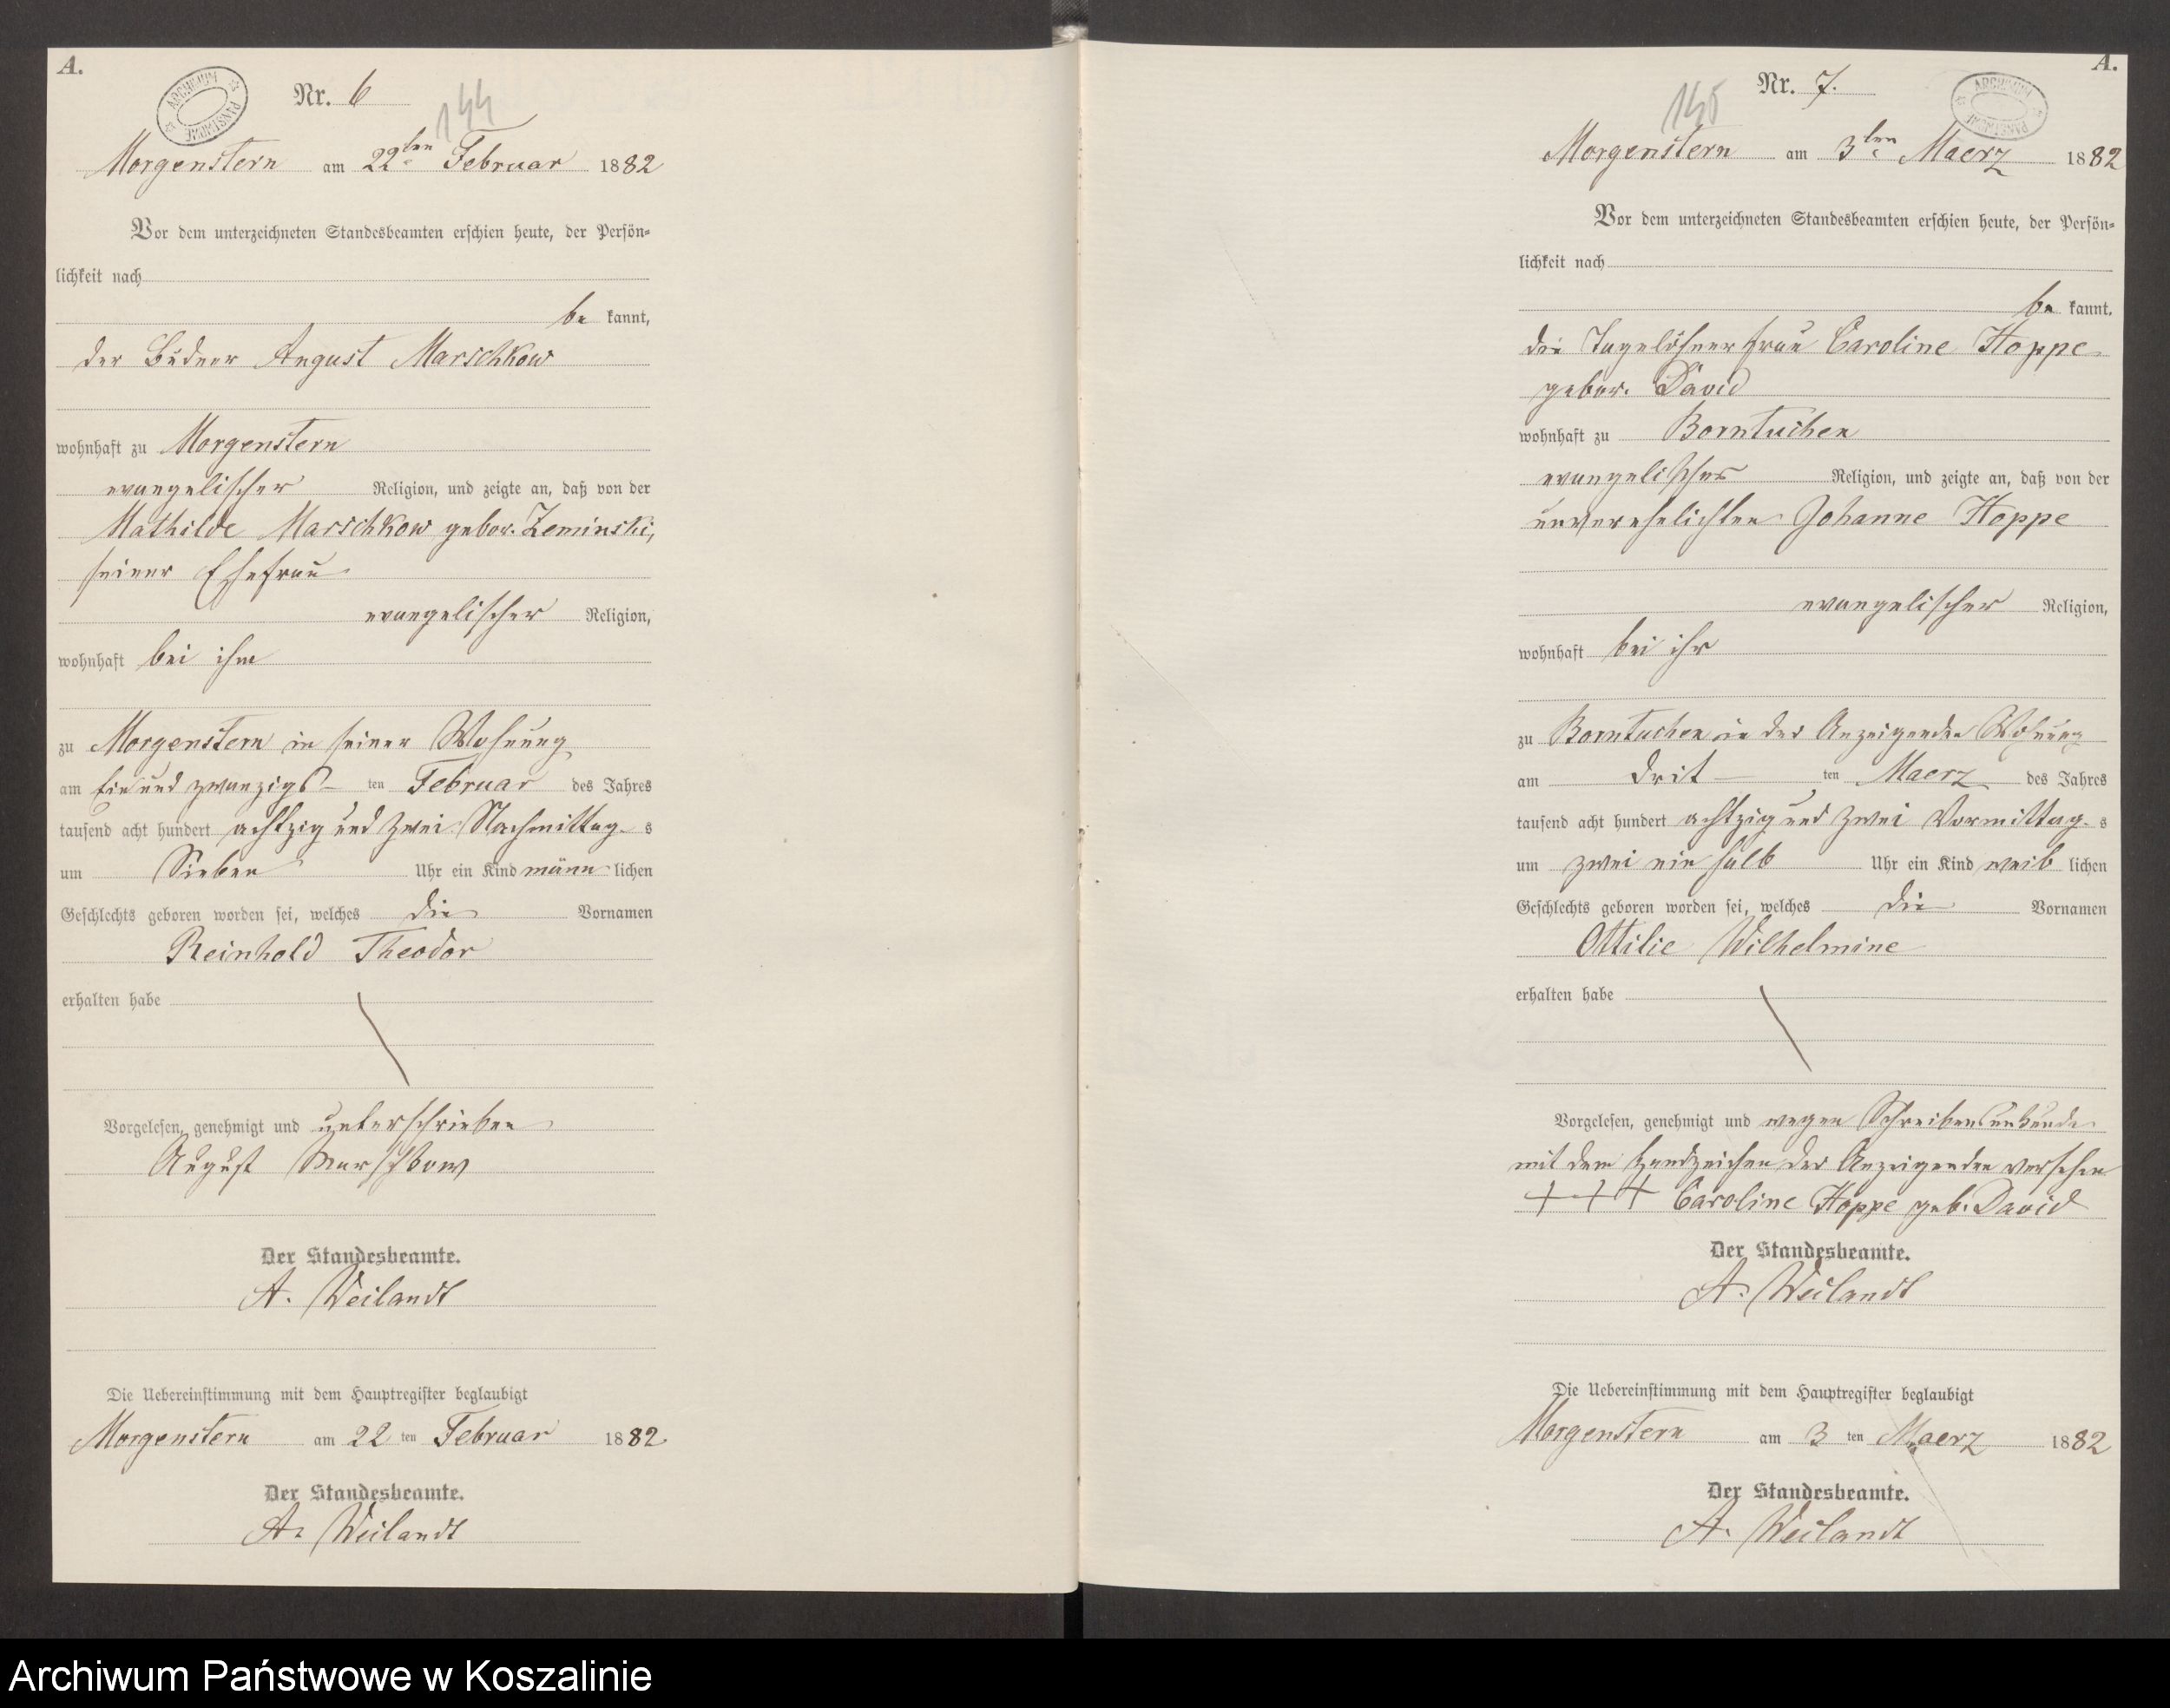 A.
ARCHIWUM PAŃSTWOWE
Nr. 6
144
Morgenstern am 22ten Februar 1882
Vor dem unterzeichneten Standesbeamten erschien heute, der Persön-
lichkeit nach
be kannt,
der Büdner August Marschkow
wohnhaft zu Morgenstern
evangelischer Religion, und zeigte an, daß von der
Mathilde Marschkow gebor. Zeminski,
seiner Ehefrau
evangelischer Religion,
wohnhaft bei ihm
zu Morgenstern in seiner Wohnung
am Ein und zwanzigs ten Februar des Jahres
tausend acht hundert achtzig und zwei Nachmittag s
um Sieben Uhr ein Kind männ lichen
Geschlechts geboren worden sei, welches die Vornamen
Reinhold Theodor
erhalten habe
Vorgelesen, genehmigt und unterschrieben
August Marschkow
Der Standesbeamte.
A. Weilandt
Die Uebereinstimmung mit dem Hauptregister beglaubigt
Morgenstern am 22 ten Februar 1882.
Der Standesbeamte.
A. Weilandt
A.
ARCHIWUM PAŃSTWOWE
Nr. 7.
145
Morgenstern am 3ten Maerz 1882
Vor dem unterzeichneten Standesbeamten erschien heute, der Persön-
lichkeit nach
be kannt,
die Tagelöhnerfrau Caroline Hoppe
gebor. David
wohnhaft zu Borntuchen
evangelischer Religion, und zeigte an, daß von der
unverehelichten Johanne Hoppe
evangelischer Religion,
wohnhaft bei ihr
zu Borntuchen in der Anzeigenden Wohnung
am drit ten Maerz des Jahres
tausend acht hundert achtzig und zwei Vormittag s
um zwei ein halb Uhr ein Kind weib lichen
Geschlechts geboren worden sei, welches die Vornamen
Ottilie Wilhelmine
erhalten habe
Vorgelesen, genehmigt und wegen Schreibensunkunde
mit dem Handzeichen der Anzeigenden versehen
+ + + Caroline Hoppe geb. David
Der Standesbeamte.
A. Weilandt
Die Uebereinstimmung mit dem Hauptregister beglaubigt
Morgenstern am 3 ten Maerz 1882
Der Standesbeamte.
A. Weilandt
Archiwum Państwowe w Koszalinie